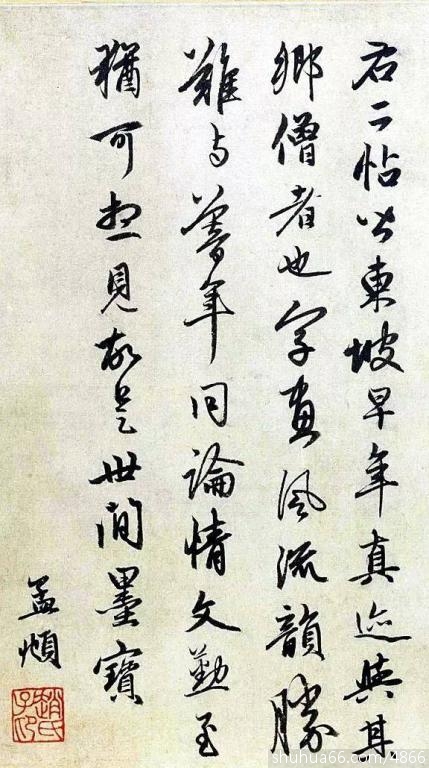 右二帖皆東坡早年真迹與其
鄉僧者也字畫風流韻勝
難与暮年同論情文勤至
猶可想見故是世間墨寶
孟頫
趙氏子印
shuhua66.com/4866